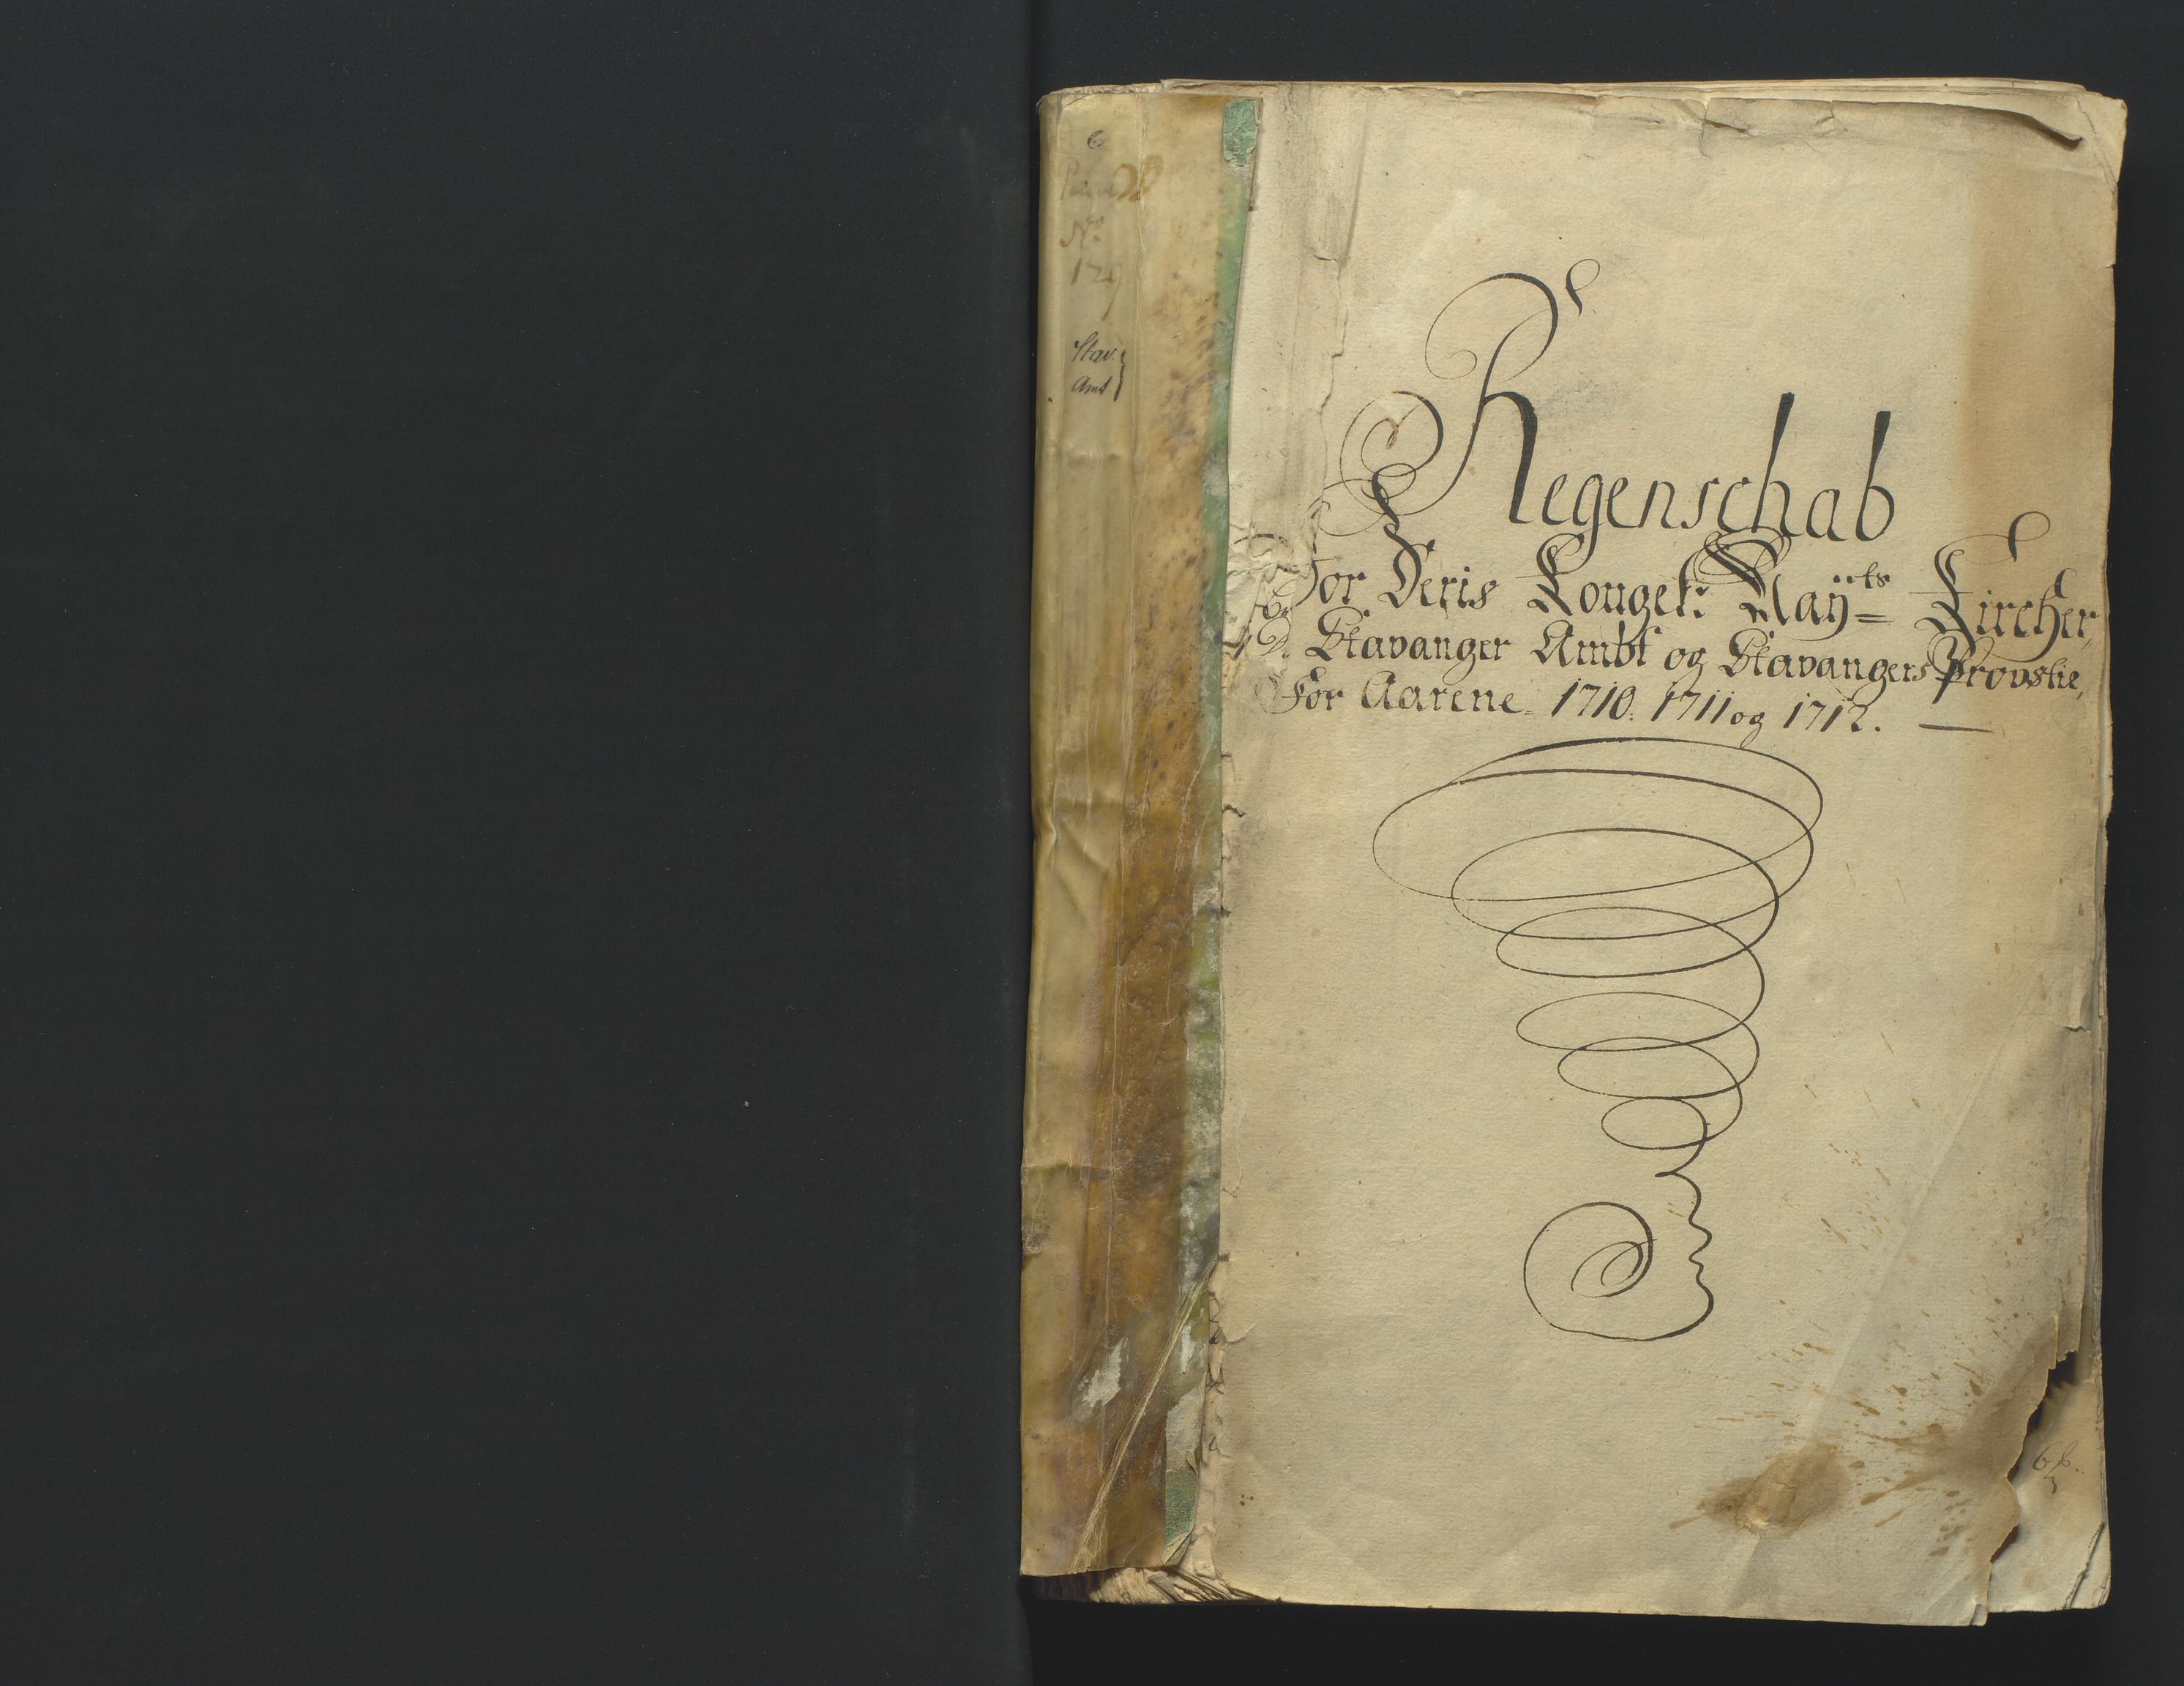 6
No
129
Stav:
Amt
Regenschab
For Deris Kongel: Maÿts Kircher,
I Stavanger Ambt og Stavangers Provstie,
For Aarene 1710. 1711 og 1712. —